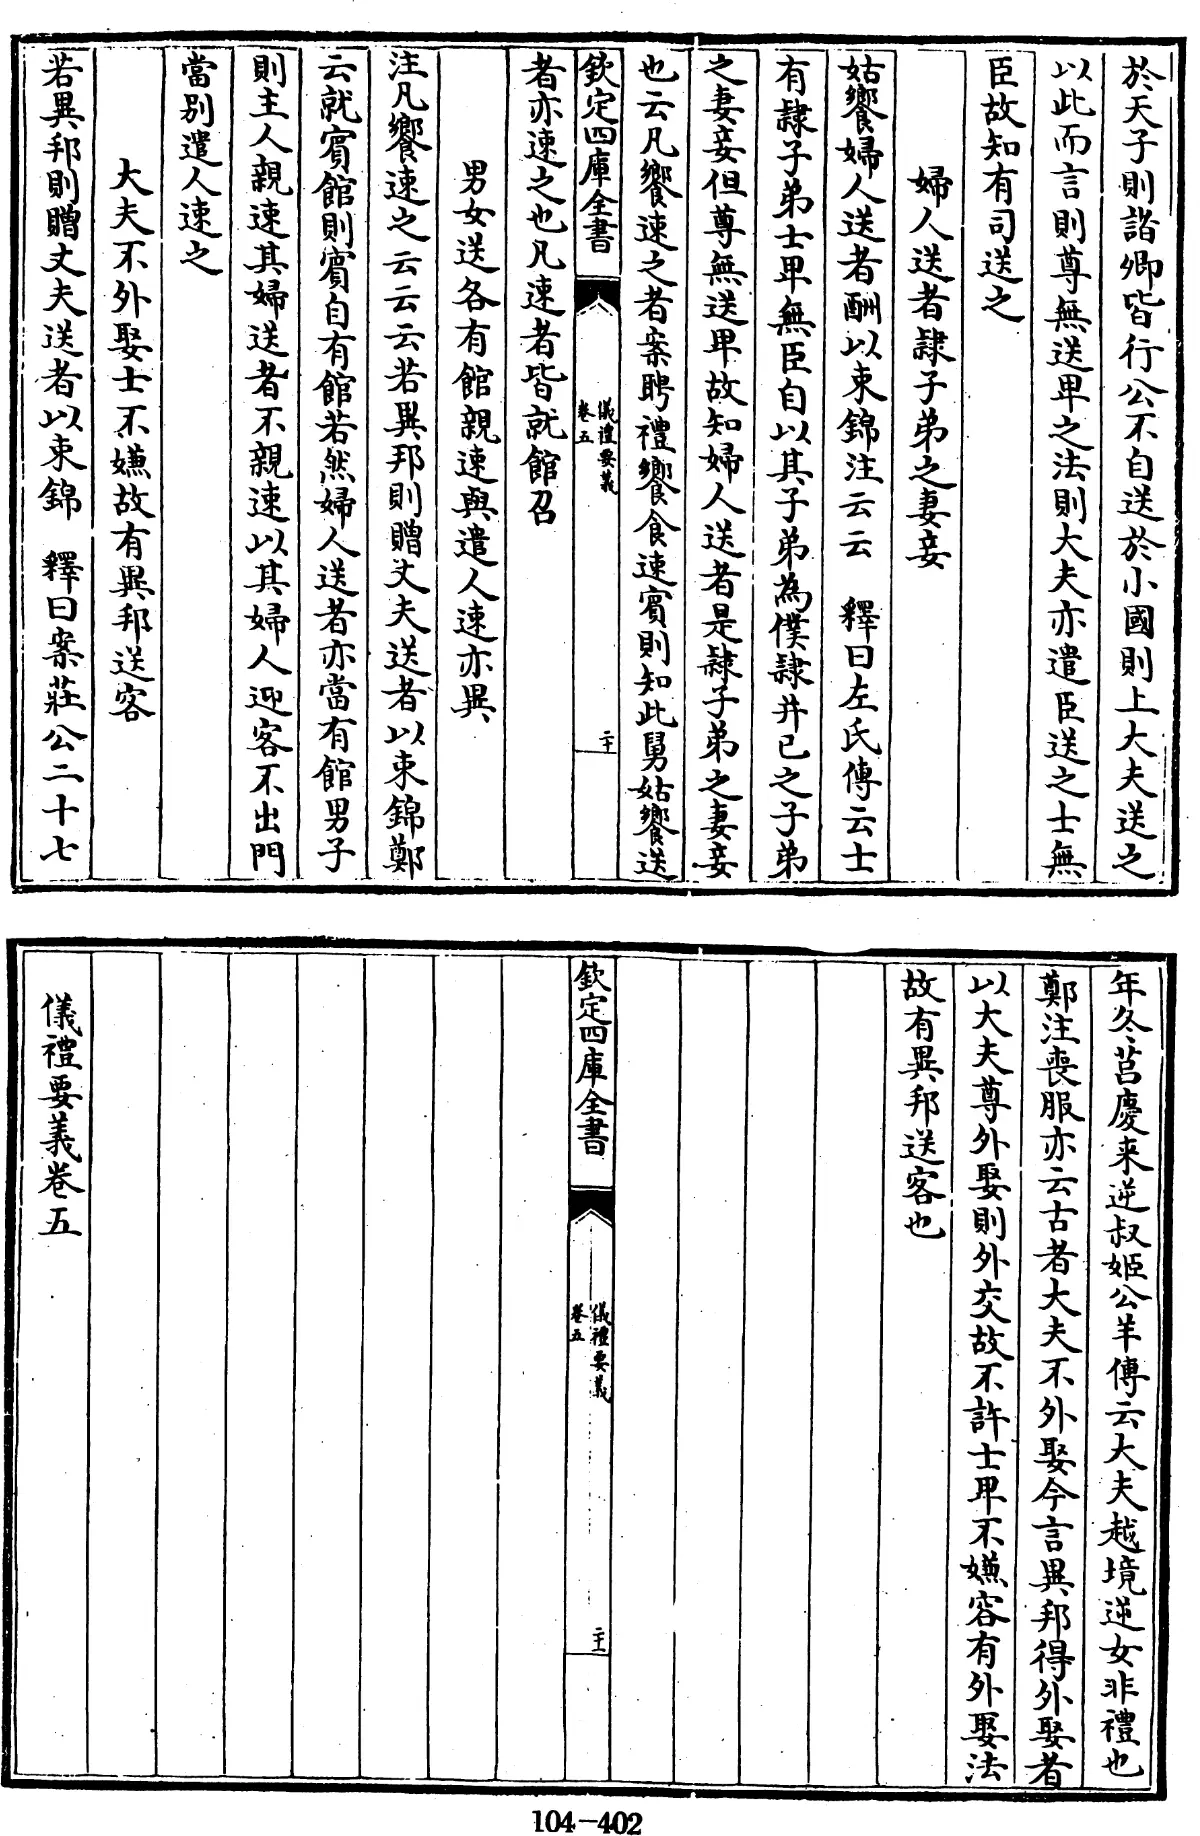 於天子則諸卿皆行公不自送於小國則上大夫送之
以此而言則尊無送卑之法則大夫亦遣臣送之士無
臣故知有司送之
婦人送者隸子弟之妻妾
姑饗婦人送者酬以束錦注云云　釋曰左氏傳云士
有隸子弟士卑無臣自以其子弟為僕隸并已之子弟
之妻妾但尊無送卑故知婦人送者是隸子弟之妻妾
也云凡饗速之者案聘禮饗食速賓則知此舅姑饗送
欽定四庫全書
儀禮要義
卷五
二十
者亦速之也凡速者皆就館召
男女送各有館親速與遣人速亦異
注凡饗速之云云云若異邦則贈丈夫送者以束錦鄭
云就賓館則賓自有館若然婦人送者亦當有館男子
則主人親速其婦送者不親速以其婦人迎客不出門
當别遣人速之
大夫不外娶士不嫌故有異邦送客
若異邦則贈丈夫送者以束錦　釋曰案莊公二十七
年冬莒慶来逆叔姬公羊傳云大夫越境逆女非禮也
鄭注喪服亦云古者大夫不外娶今言異邦得外娶者
以大夫尊外娶則外交故不許士卑不嫌容有外娶法
故有異邦送客也
欽定四庫全書
儀禮要義
卷五
二十一
儀禮要義卷五
104-402